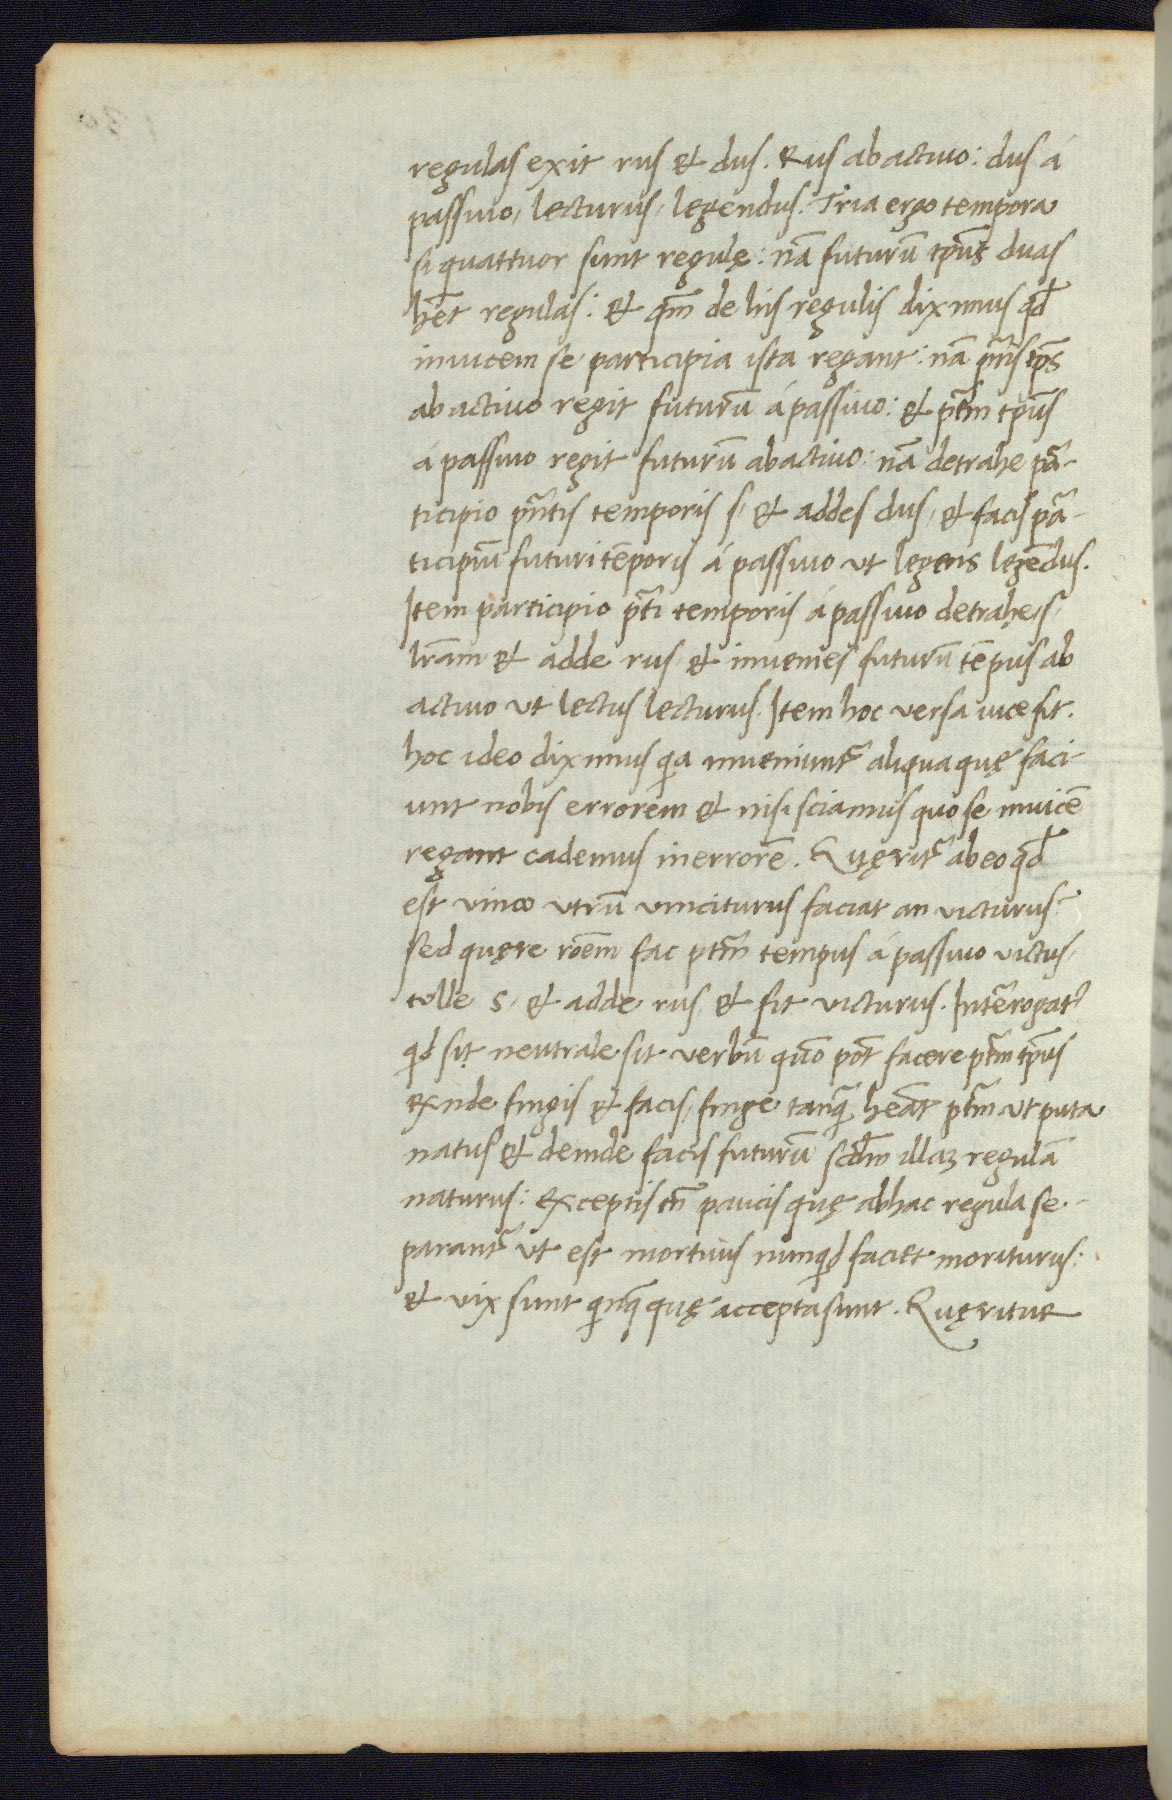 regulas exit rus & dus. Rus ab actiuo: dus á
passiuo, lecturus, legendus. Tria ergo tempora
si quattuor sunt regulę: nā futurū tp̄us duas
hēt regulas: & qm̄ de his regulis diximus qd̄
inuicem se participia ista regant: nā pn̄tis tp̄s
ab actiuo regit futurū á passiuo: & pt̄m tp̄us
á passiuo regit futurū ab actiuo: nā detrahe pā-
ticipio pn̄tis temporis s, & addes dus, & facis pā-
ticipiū futuri tēporis á passiuo ut legens legēdus.
Item participio pt̄i temporis á passiuo detrahe, s,
lr̄am & adde rus, & inuenies futurū tēpus ab
actiuo ut lectus lecturus. Item hoc versa uice fit.
hoc ideo diximus qia inueniunt̄ aliqua quę faci-
unt nobis errorem & nisi sciamus quo se inuicē
regant cademus in errorē. Quęrit̄ ab eo qd̄
est vinco utrū vinciturus faciat an victurus?
sed quęre rōem fac pt̄m tempus á passiuo victus,
tolle s, & adde rus, & fit victurus. Intērogat̄
qd sit neutrale sit verbū quō pōt facere pt̄m tp̄us
exinde fingis & facis, finge tanq̄ heāt pt̄m ut puta
natus & deinde facis futurū scd̄m illaz regulā
naturus: exceptis tn̄ paucis quę ab hac regula se-
parant̄ ut est mortuus nunqd faciet moriturus:
& vix sunt qinq quę accepta sunt. Quęritur